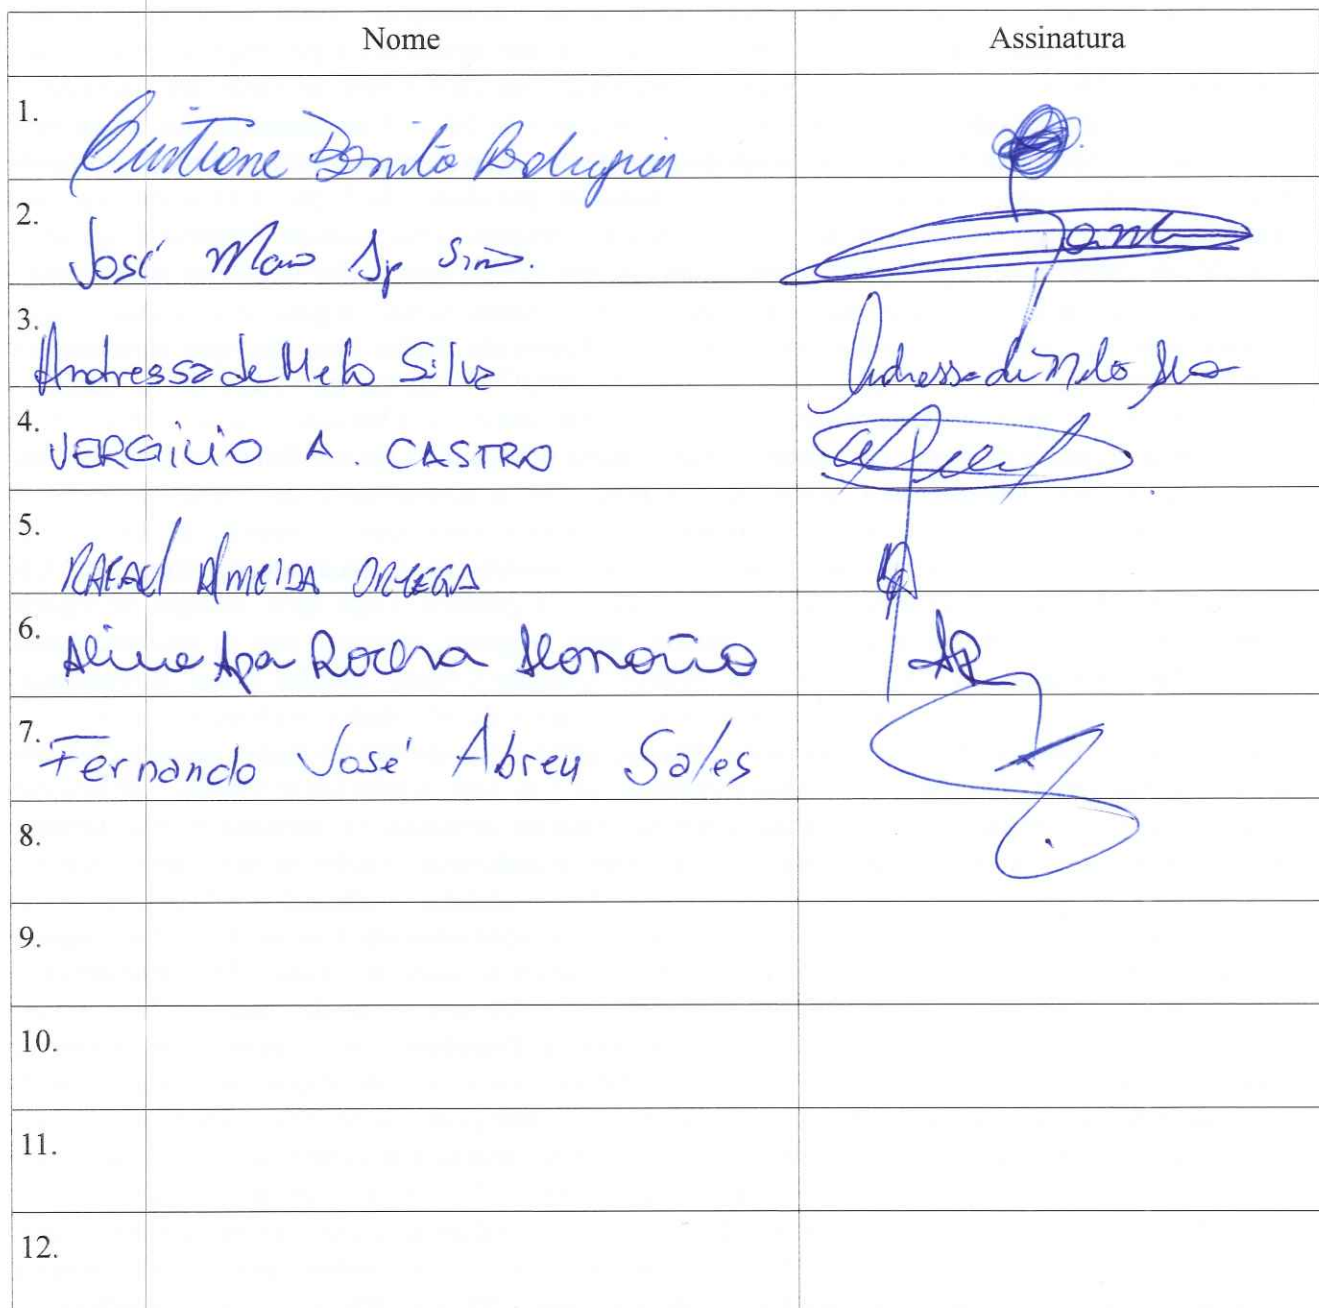 Nome Assinatura
1. Benito
2. José
3. Andressa de Melo Silva Andressa de Melo
4. VERGILIO A. CASTRO
5. RAFAEL ALMEIDA ORTEGA
6. Aline Apa Rocha Honório AR
7. Fernando José Abreu Sales
8.
9.
10.
11.
12.